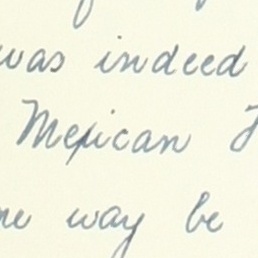 was indeed
Mexican
way be